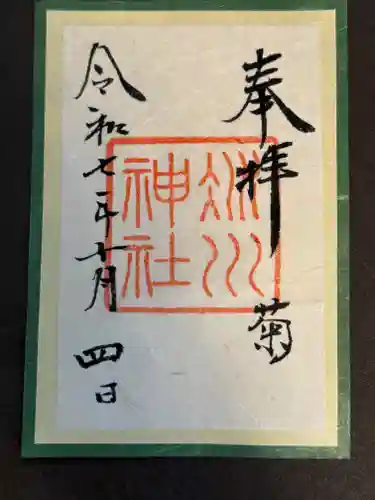 奉拝
菊
川
神社
令和七年十月
四日